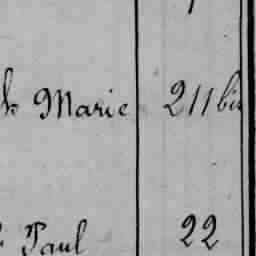 Marie 211 bis
Paul 22